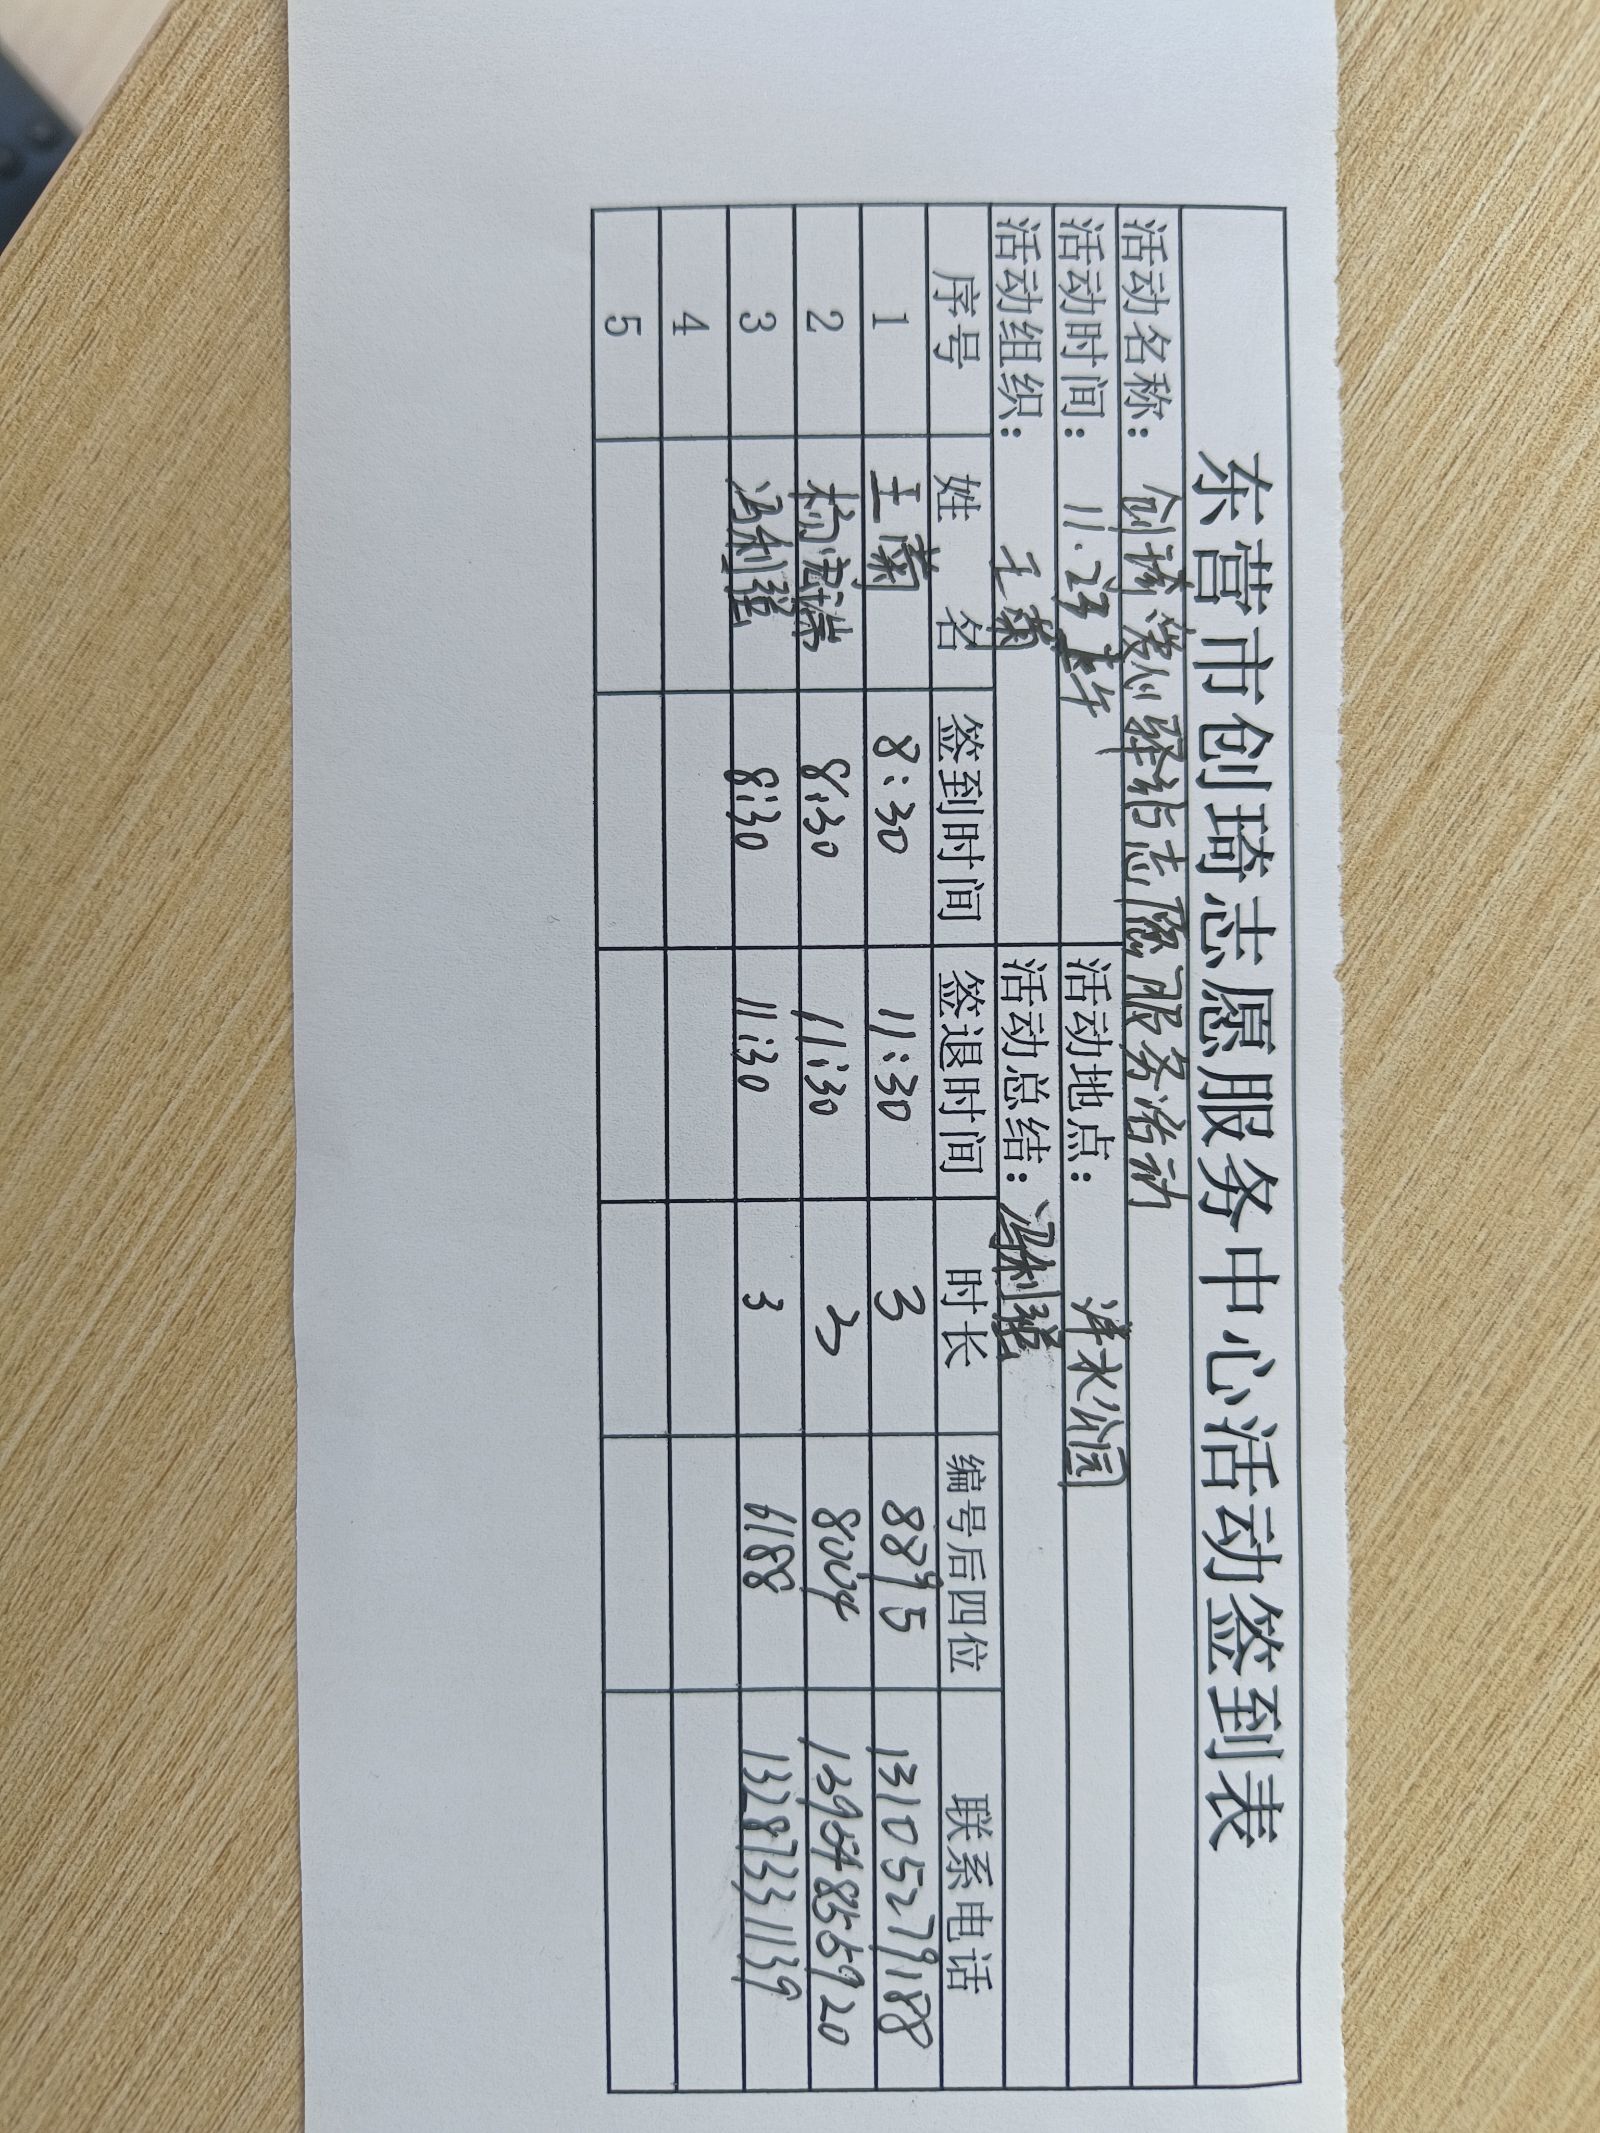 东营市创琦志愿服务中心活动签到表
活动名称: 创琦 驿站志愿服务活动
活动时间: 11. 上午 活动地点: 洋水公园
活动组织: 王菊 活动总结: 冯利强
序号 姓名 签到时间 签退时间 时长 编号后四位 联系电话
1 王菊 8:30 11:30 3 8895 13105279188
2 杨 8:30 11:30 3 8004 13954855920
3 冯利强 8:30 11:30 3 6188 13287331139
4
5